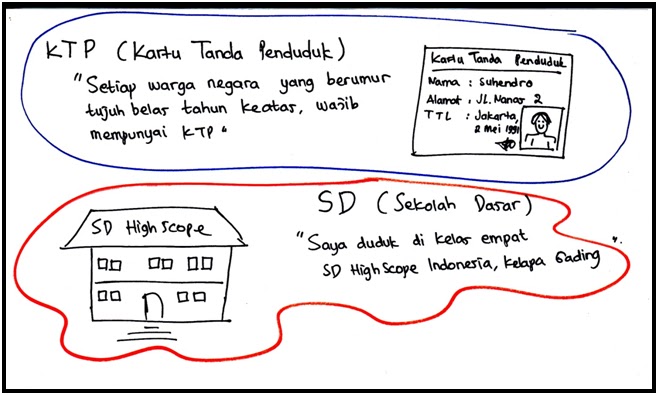 KTP (Kartu Tanda Penduduk)
"Setiap warga negara yang berumur
tujuh belas tahun keatas, wajib
mempunyai KTP"
Kartu Tanda Penduduk
Nama : Suhendro
Alamat : Jl. Nanas 2
TTL : Jakarta,
2 Mei 1991
SD (Sekolah Dasar)
"Saya duduk di kelas empat
SD HighScope Indonesia, Kelapa Gading".
SD HighScope